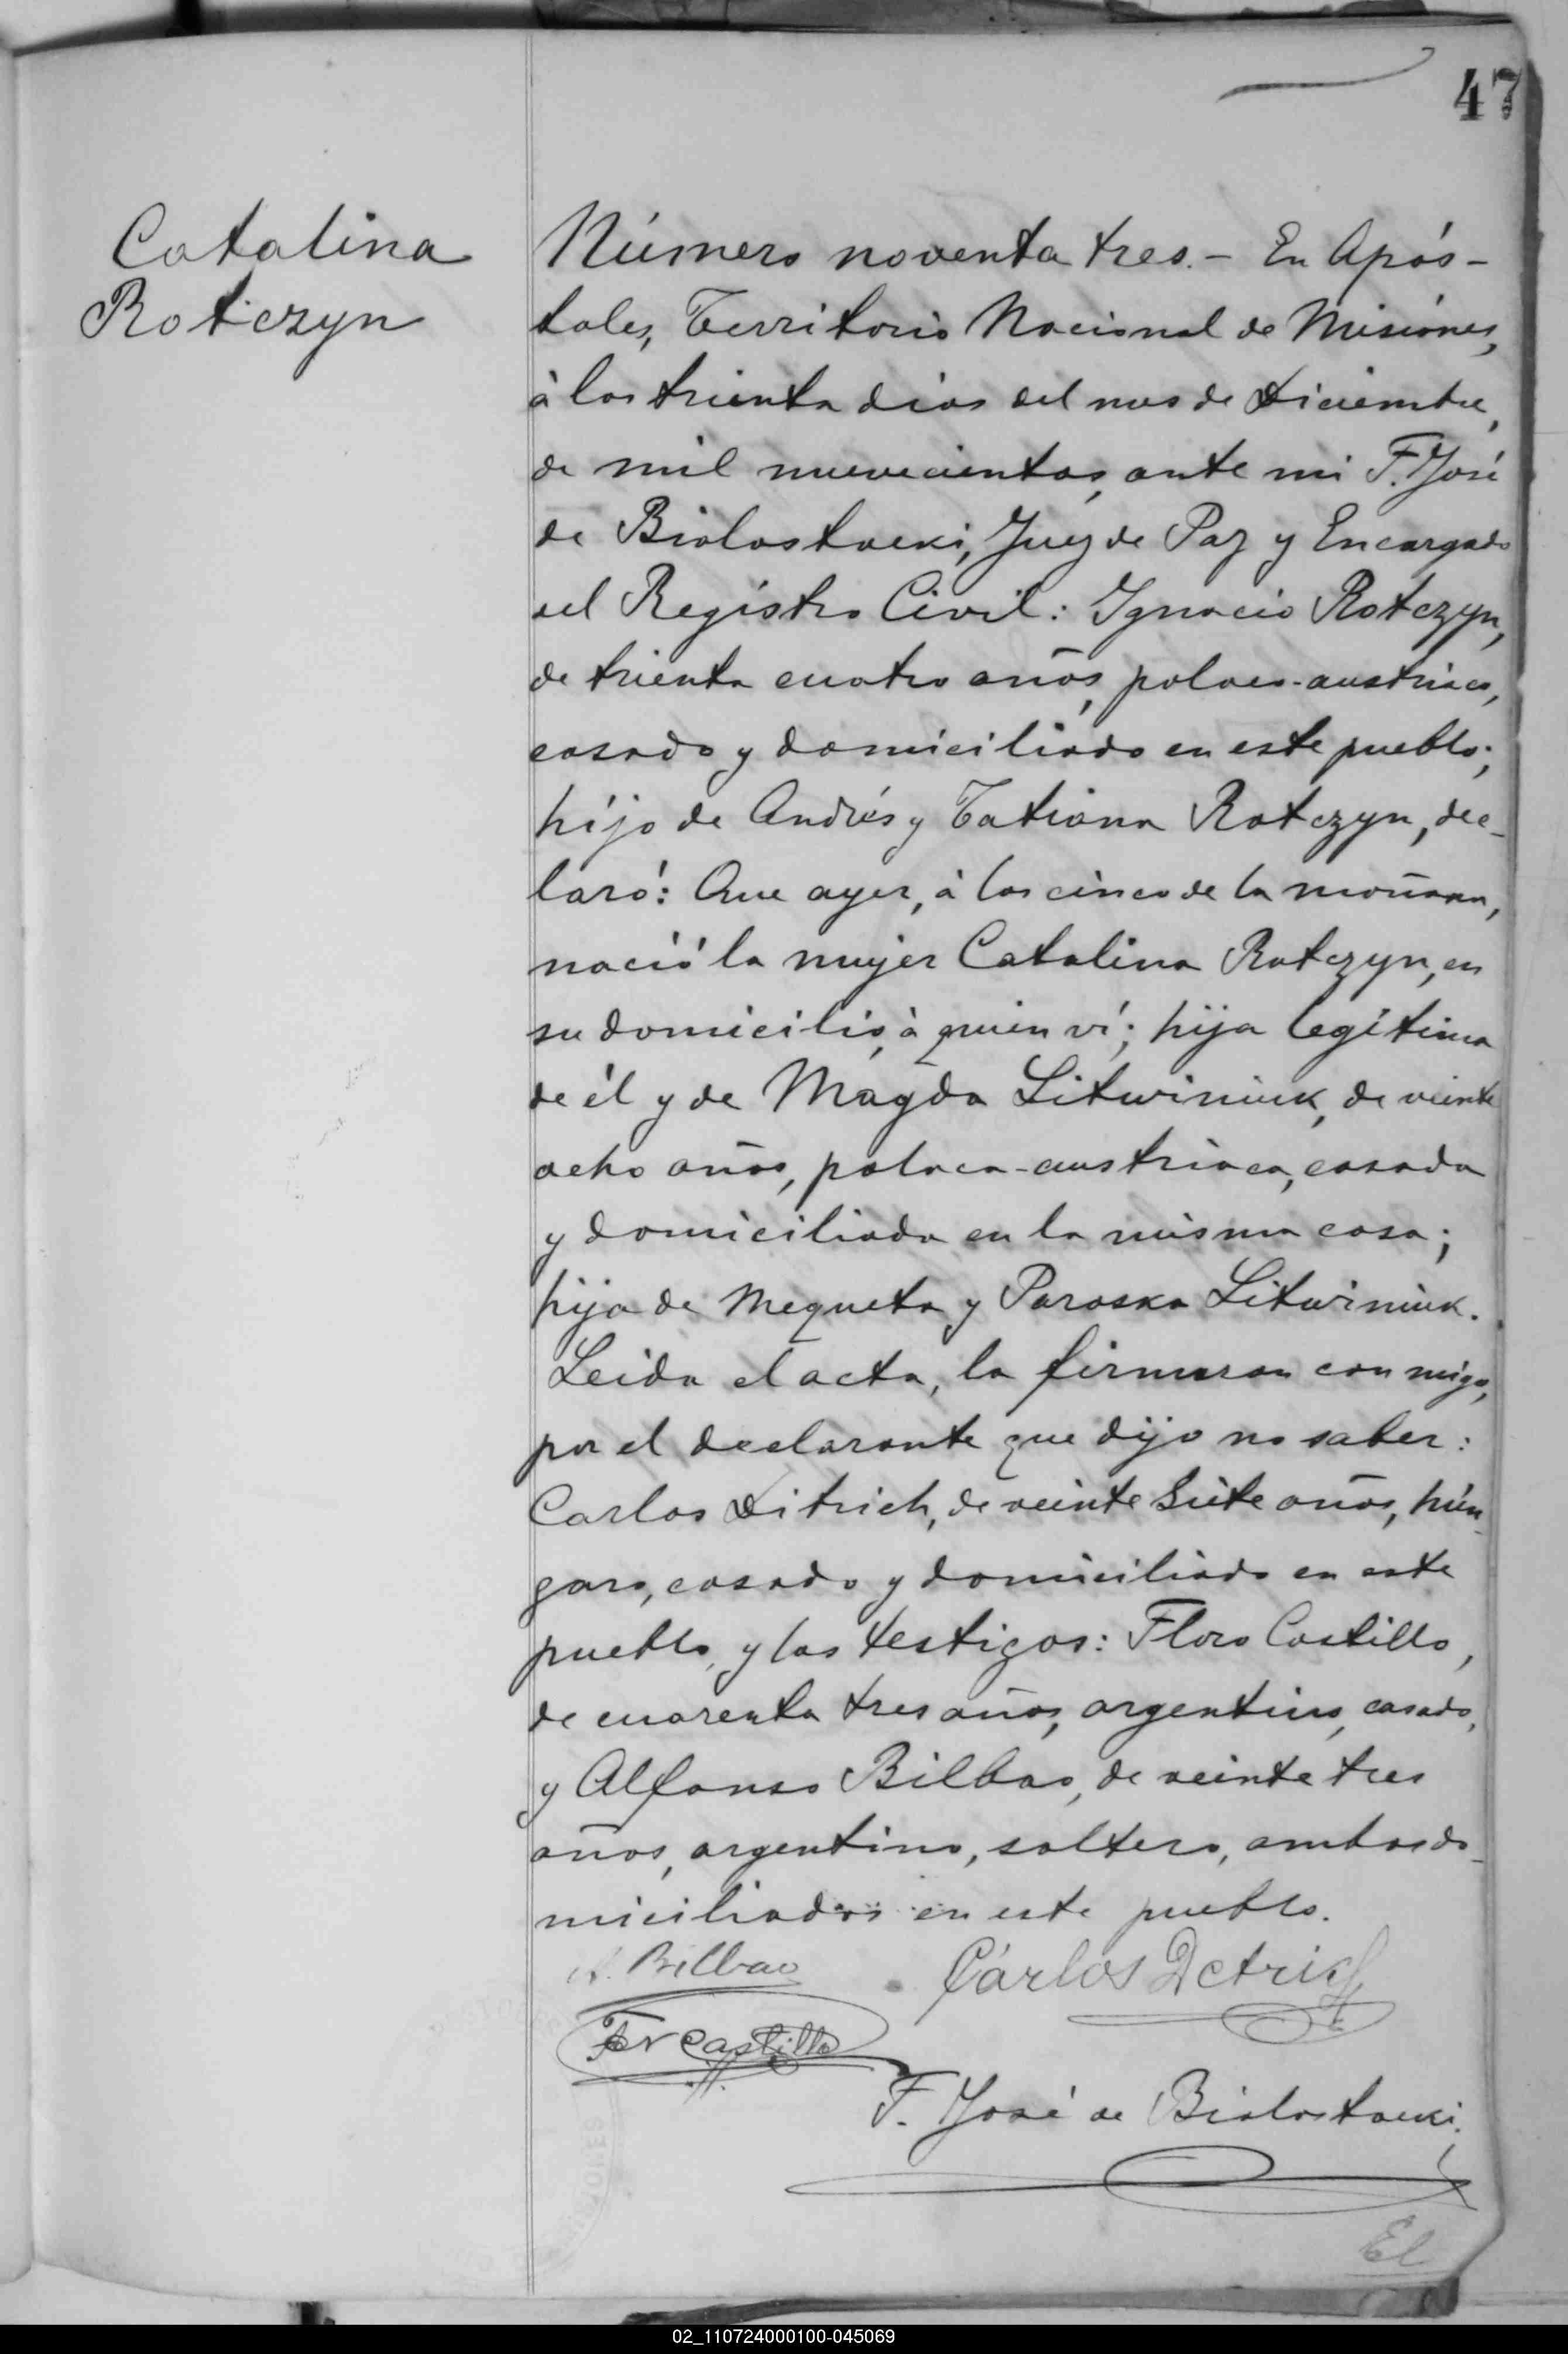 47
Catalina
Rotczyn
Número noventa tres.- En Após-
toles, Territorio Nacional de Misiónes,
à los trienta dias del mes de Diciembre,
de mil nuevecientos, ante mi F. José
de Bialostocki, Juez de Paz y Encargado
del Registro Civil: Ignacio Rotczyn,
de trienta cuatro años, polaco-austriaco,
casado y domiciliado en este pueblo;
hijo de Andrés y Tatiana Rotczyn, dec-
laró: Que ayer, à las cinco de la mañana,
nació la mujer Catalina Rotczyn, en
su domicilio, à quien ví; hija legítima
de él y de Magda Litwiniuk, de veinte
ocho años, polaca-austriaca, casada
y domiciliada en la misma casa;
hija de Mequeta y Paraska Litwiniuk.
Leida el acta, la firmaron con migo,
por el declarante que dijo no saber:
Carlos Ditrich, de veinte siete años, hún-
garo, casado y domiciliado en este
pueblo, y los testigos: Floro Castillo,
de cuarenta tres años, argentino, casado,
y Alfonso Bilbao, de veinte tres
años, argentino, soltero, ambos do-
miciliados en este pueblo.
A. Bilbao
Cárlos Detrich
Castillo
F. José de Bialostocki
El
02_110724000100-045069